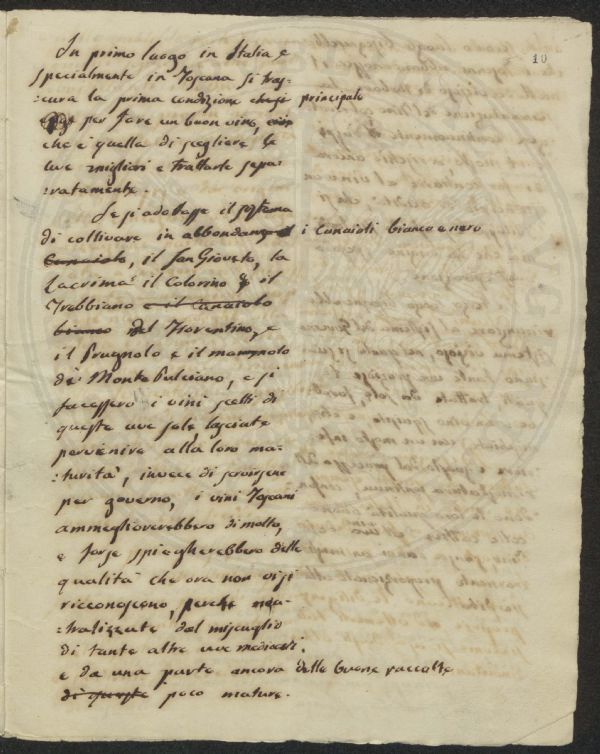 10
In primo luogo in Italia e
specialmente in Toscana si tras-
:cura la prima condizione principale
per fare un buon vino,
che è quella di scegliere le
uve migliori e trattarle sepa-
:ratamente.
Se si adottasse il sistema
di coltivare in abbondanza i Canaioli bianco e nero
Canaiolo, il San Gioveto, la
Lacrima il Colorino il
Trebbiano e il Canaiolo
bianco del Fiorentino, e
il Prugnolo e il mamnolo
di Monte Pulciano, e si
facessero i vini scelti di
queste uve sole, lasciate
pervenire alla loro ma-
:turità, invece di servirsene
per governo, i vini Toscani
ammeglioverebbero di molto,
e forse spiegherebbero delle
qualità che ora non vi si
riconoscono, perche neu-
:tralizzate dal miscuglio
di tante altre uve mediocri,
e da una parte ancora delle buone raccolte
di queste poco mature.